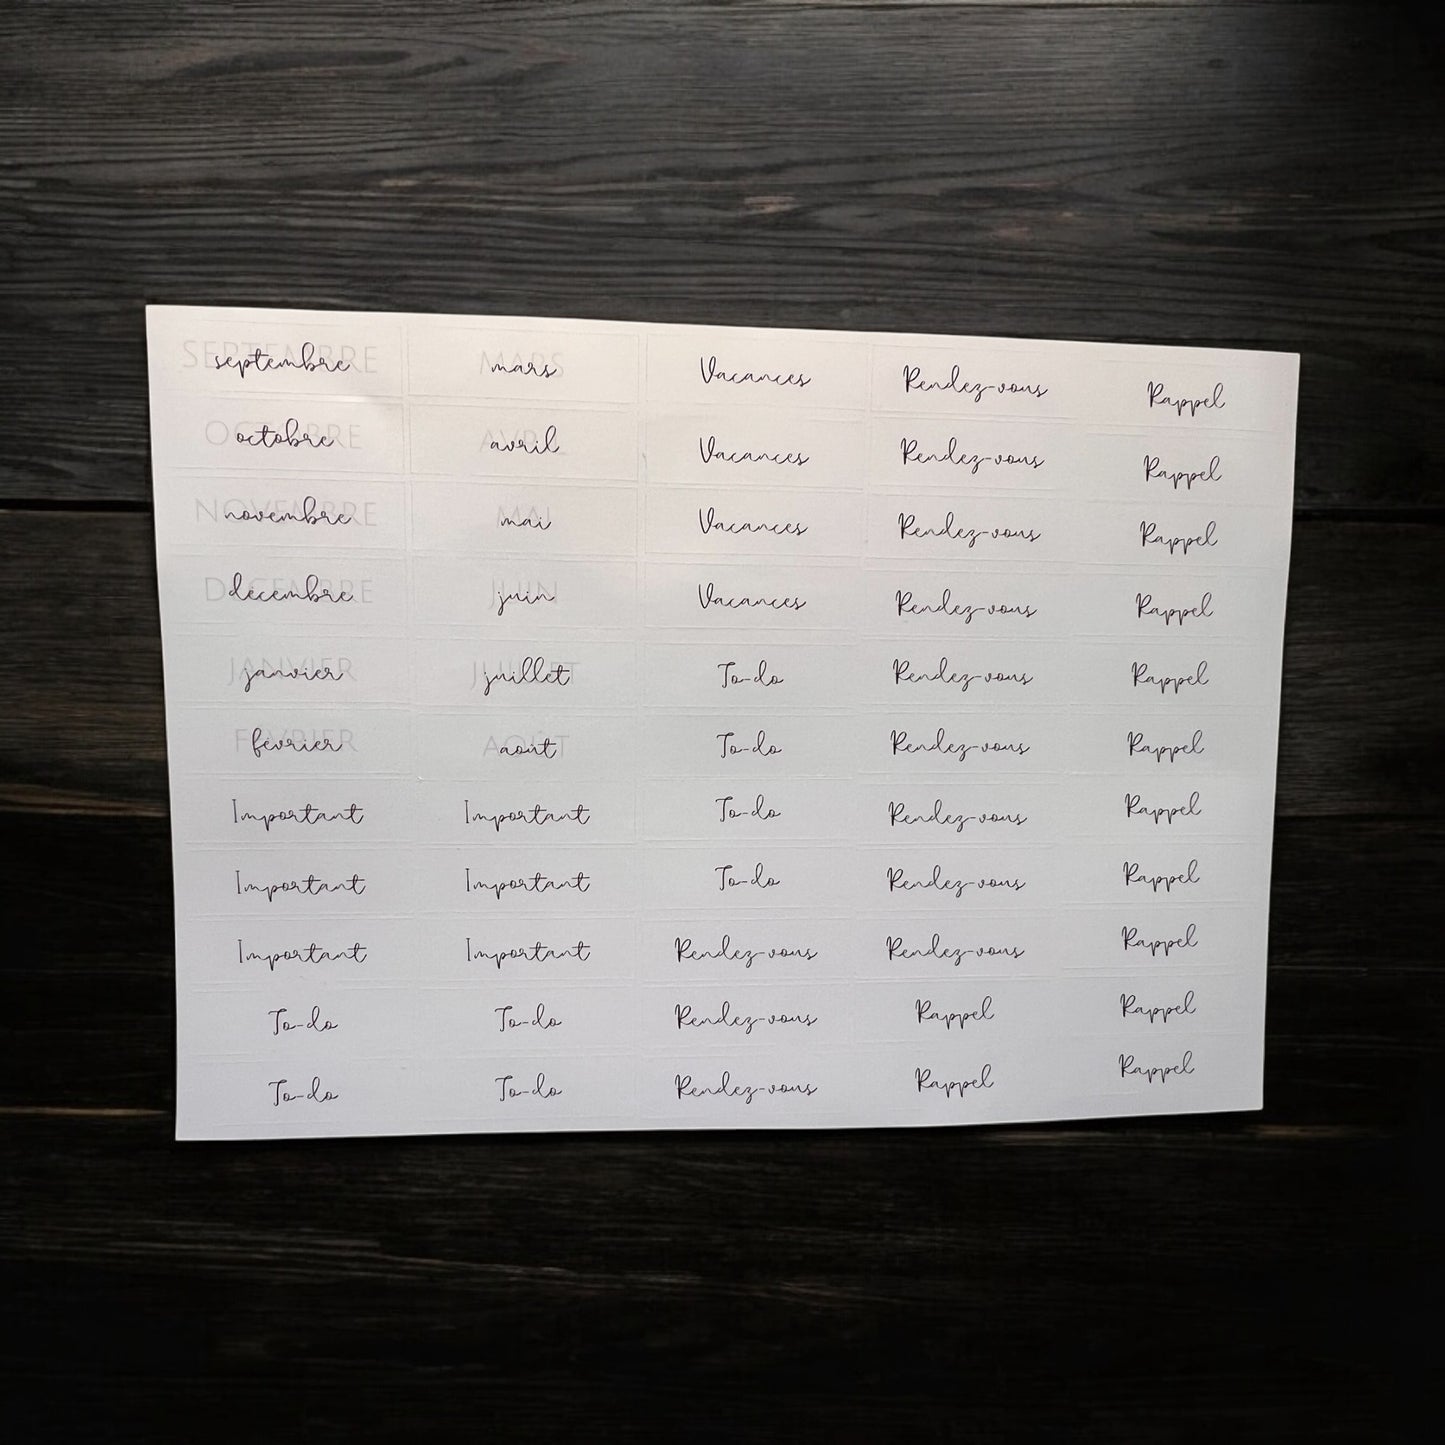 SEPTEMBRE septembre MARS mars Vacances Rendez-vous Rappel
OCTOBRE octobre AVRIL avril Vacances Rendez-vous Rappel
NOVEMBRE novembre MAI mai Vacances Rendez-vous Rappel
DÉCEMBRE décembre JUIN juin Vacances Rendez-vous Rappel
JANVIER janvier JUILLET juillet To-do Rendez-vous Rappel
FÉVRIER février AOÛT août To-do Rendez-vous Rappel
Important Important To-do Rendez-vous Rappel
Important Important To-do Rendez-vous Rappel
Important Important Rendez-vous Rendez-vous Rappel
To-do To-do Rendez-vous Rappel Rappel
To-do To-do Rendez-vous Rappel Rappel